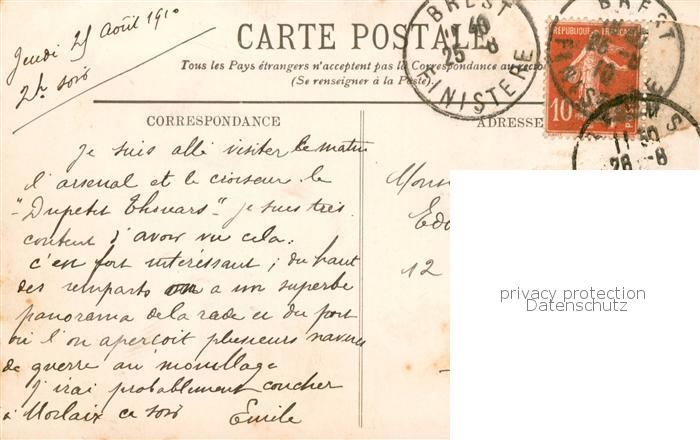 Jeudi 25 Août 1910
2h soir
CARTE POSTALE
Tous les Pays étrangers n'acceptent pas la Correspondance au recto
(Se renseigner à la Poste).
BREST
25 -8
FINISTÈRE
BREST
REPUBLIQUE FRANÇAISE
10
10
POSTES
11 30
28 -8
CORRESPONDANCE
ADRESSE
Je suis allé visiter ce matin
l'arsenal et le croiseur le
"Dupetit Thouars" je suis très
content d'avoir vu cela.
c'en fort intéressant ; du haut
des remparts on a un superbe
panorama de la rade et du port
où l'on aperçoit plusieurs navires
de guerre au mouillage
J'irai probablement coucher
à Morlaix ce soir
Emile
Mons
Edo
12
privacy protection
Datenschutz